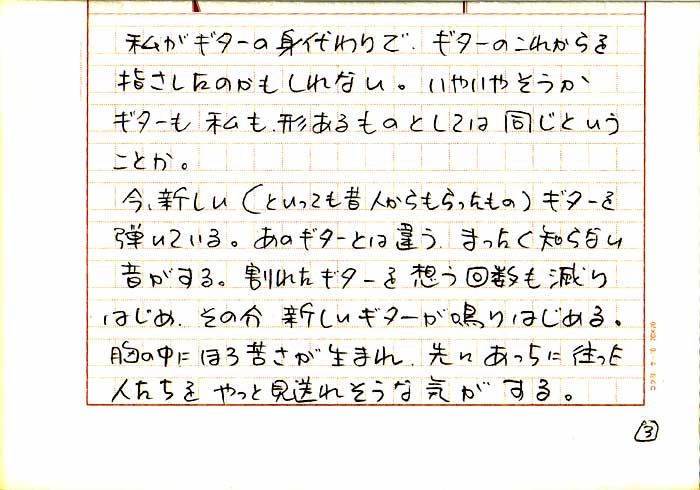 私がギターの身代わりで、ギターのこれからを
指さしたのかもしれない。いやいやそうか
ギターも私も、形あるものとしては同じという
ことか。
今、新しい(といっても昔人からもらったもの)ギターを
弾いている。あのギターとは違う、まったく知らない
音がする。割れたギターを想う回数も減り
はじめ、その分 新しいギターが鳴りはじめる。
胸の中にほろ苦さが生まれ、先にあっちに往った
人たちを やっと見送れそうな気がする。
③